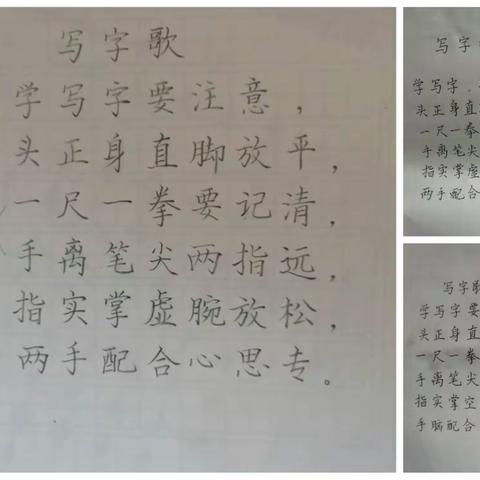 写字歌
学写字要注意，
头正身直脚放平，
一尺一拳要记清，
手离笔尖两指远，
指实掌虚腕放松，
两手配合心思专。
写字
学写字，
头正身直
一尺一拳
手离笔尖
指实掌虚
两手配合
写字歌
学写字要
头正身直
一尺一拳
手离笔尖
指实掌空
手脑配合